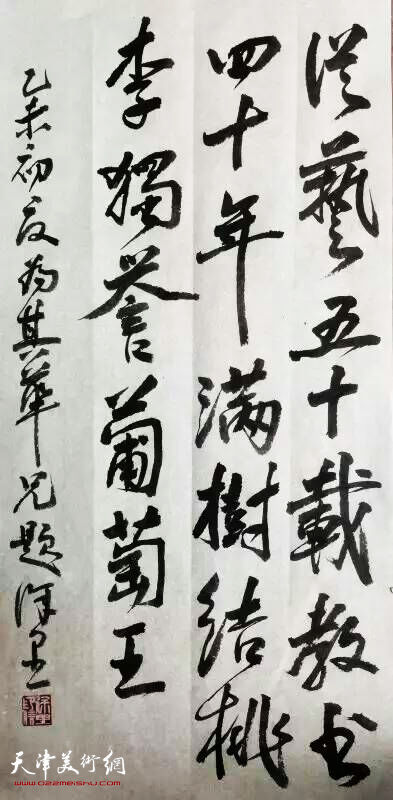 從藝五十載教书
四十年满樹结桃
李獨誉葡萄王
乙未初夏为其華兄题
天津美術網
www.022meishu.com